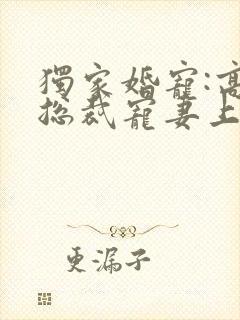 獨家婚寵:高
總裁寵妻上
更漏子